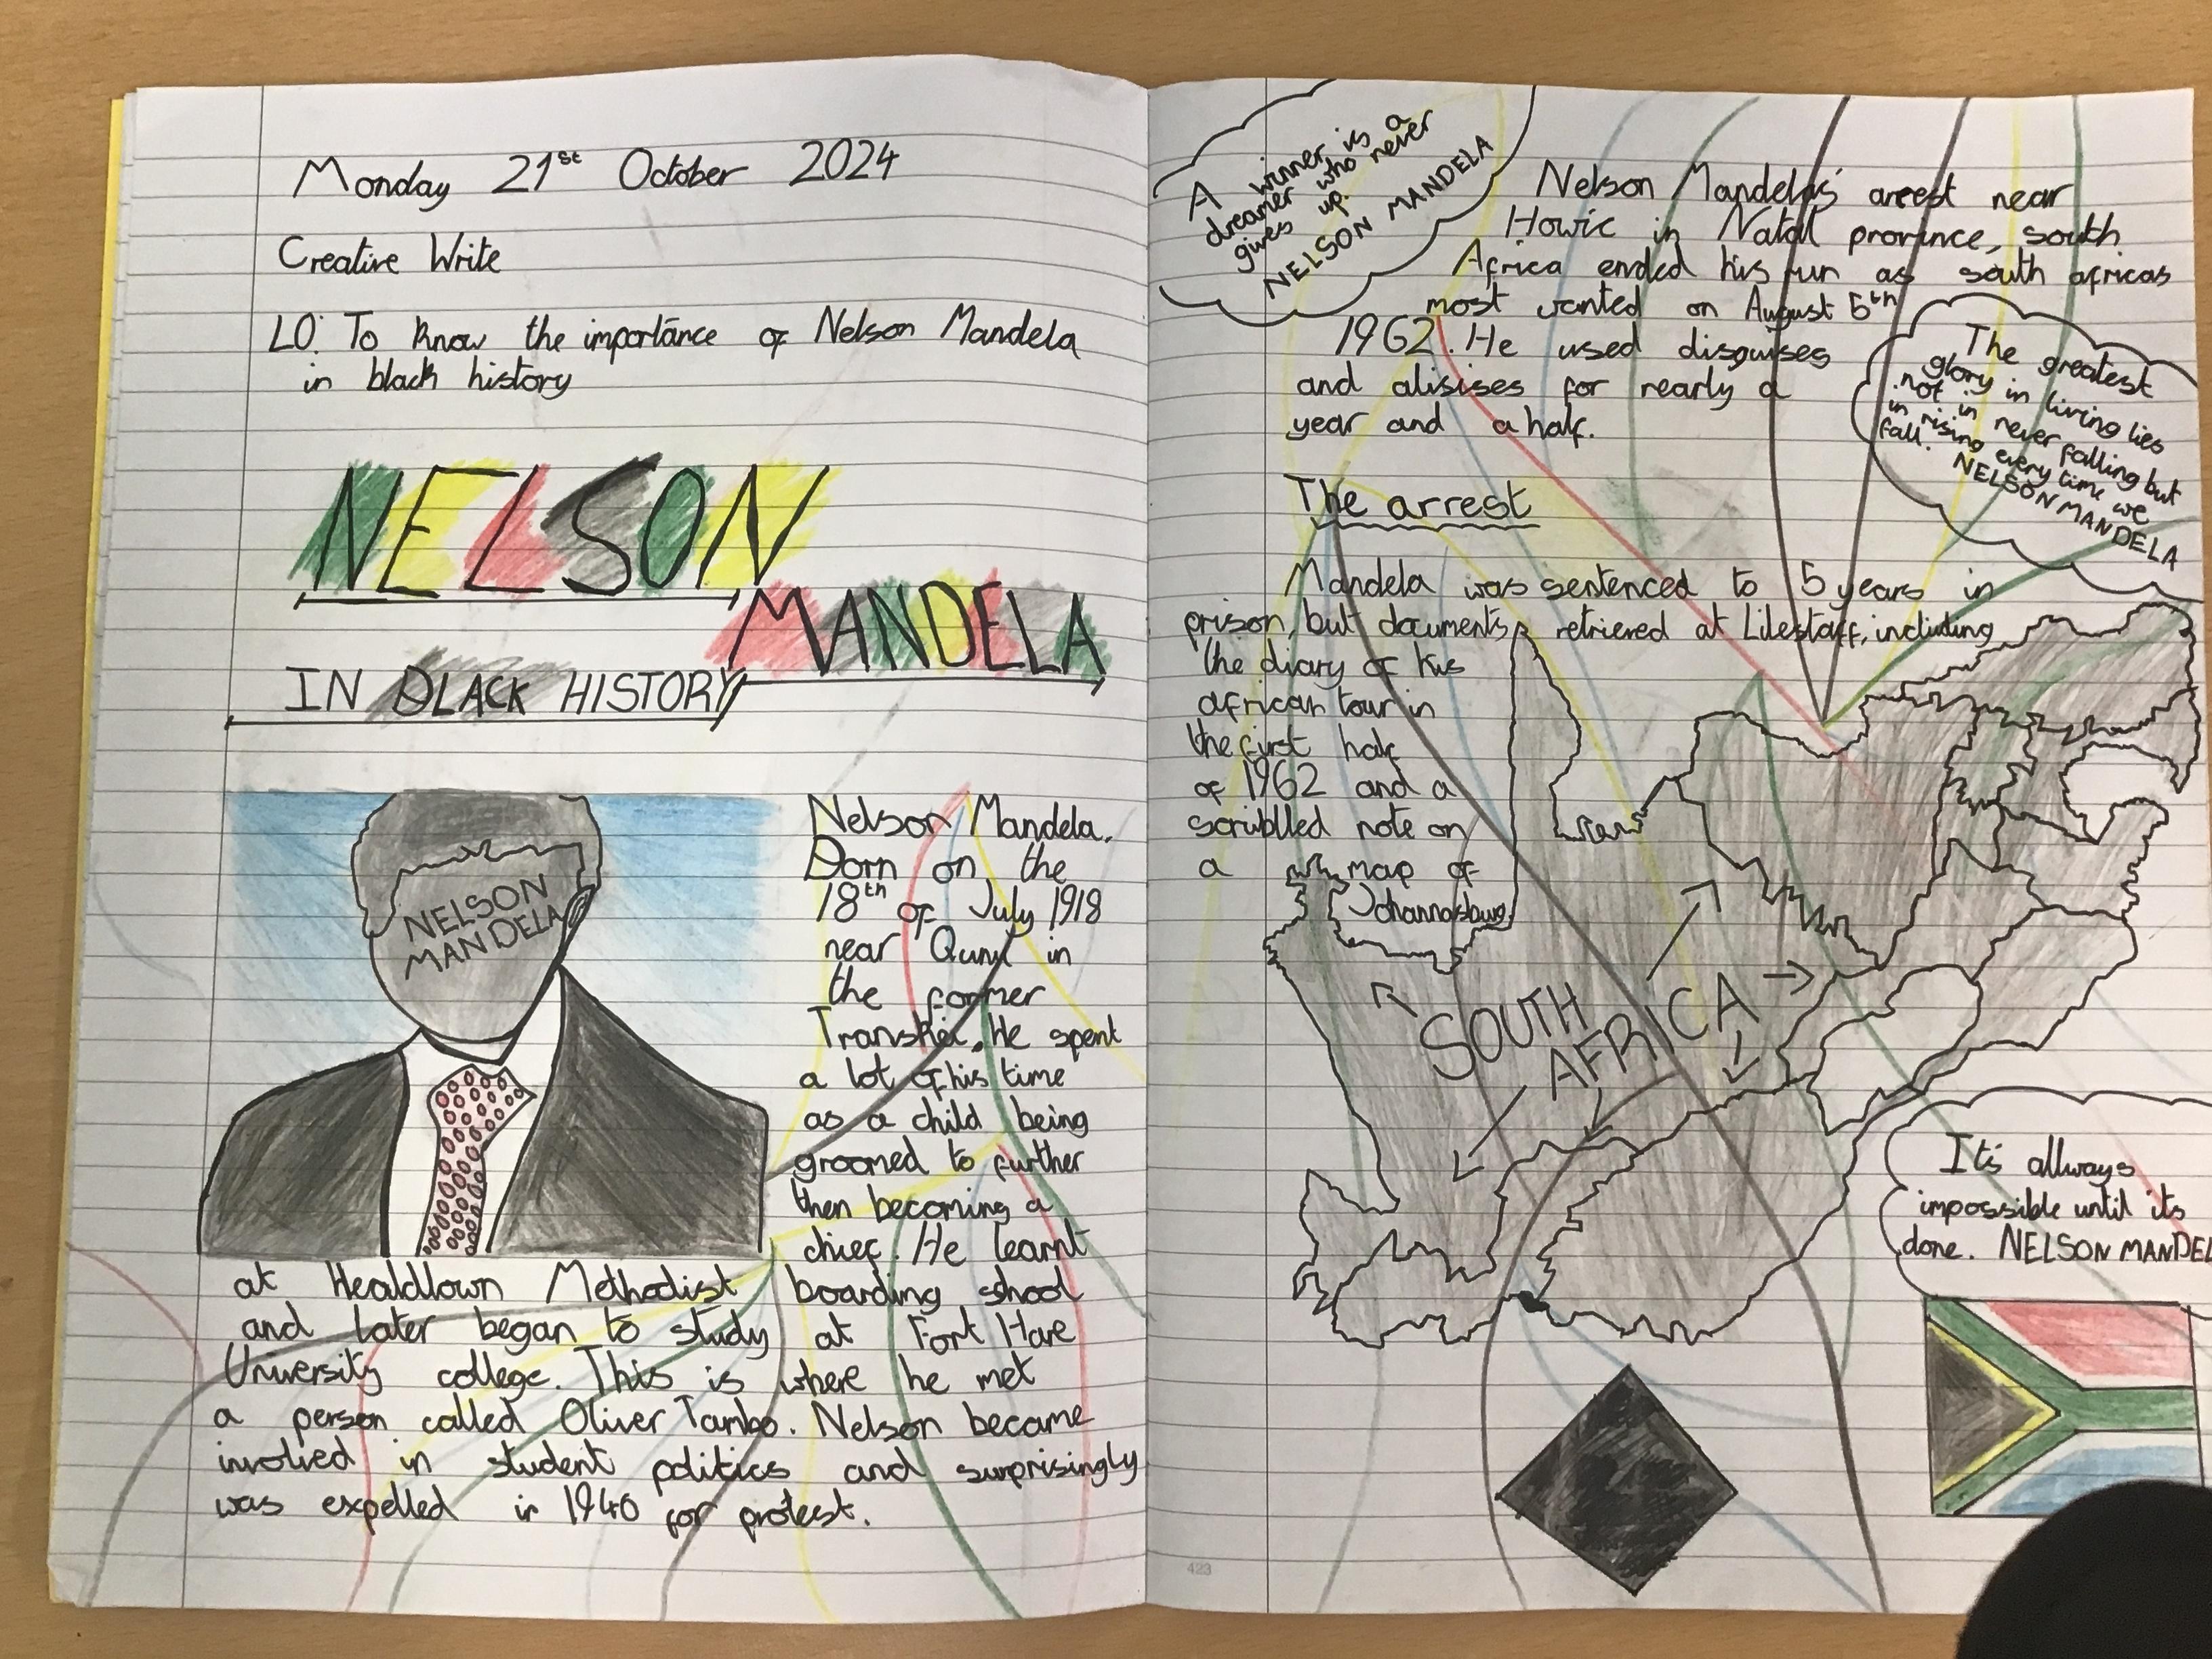 Monday 21st October 2024
Creative Write
LO: To know the importance of Nelson Mandela
in black history
NELSON
MANDELA
IN BLACK HISTORY
NELSON
MANDELA
Nelson Mandela.
Born on the
18th of July 1918
near Qunu in
the former
Transkei. He spent
a lot of his time
as a child being
groomed to further
then becoming a
chief. He learnt
at Healdtown Methodist boarding school
and later began to study at Fort Hare
University college. This is where he met
a person called Oliver Tambo. Nelson became
involved in student politics and surprisingly
was expelled in 1940 for protest.
A winner is a
dreamer who never
gives up.
NELSON MANDELA
Nelson Mandela's arrest near
Howic in Natal province, south
Africa ended his run as south africas
most wanted on August 5th
1962. He used disguises
and alisises for nearly a
year and a half.
The greatest
glory in living lies
not in never falling but
in rising every time we
fall.
NELSON MANDELA
The arrest
Mandela was sentenced to 5 years in
prison, but documents retrieved at Lilestaff, including
the diary of his
african tour in
the first half
of 1962 and a
scriblled note on
a map of
Johannasburg
SOUTH
AFRICA
It's allways
impossible until its
done. NELSON MANDEL
423